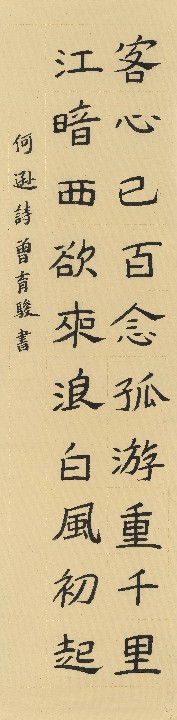 客心已百念孤游重千里
江暗雨欲來浪白風初起
何遜詩曾育駿書